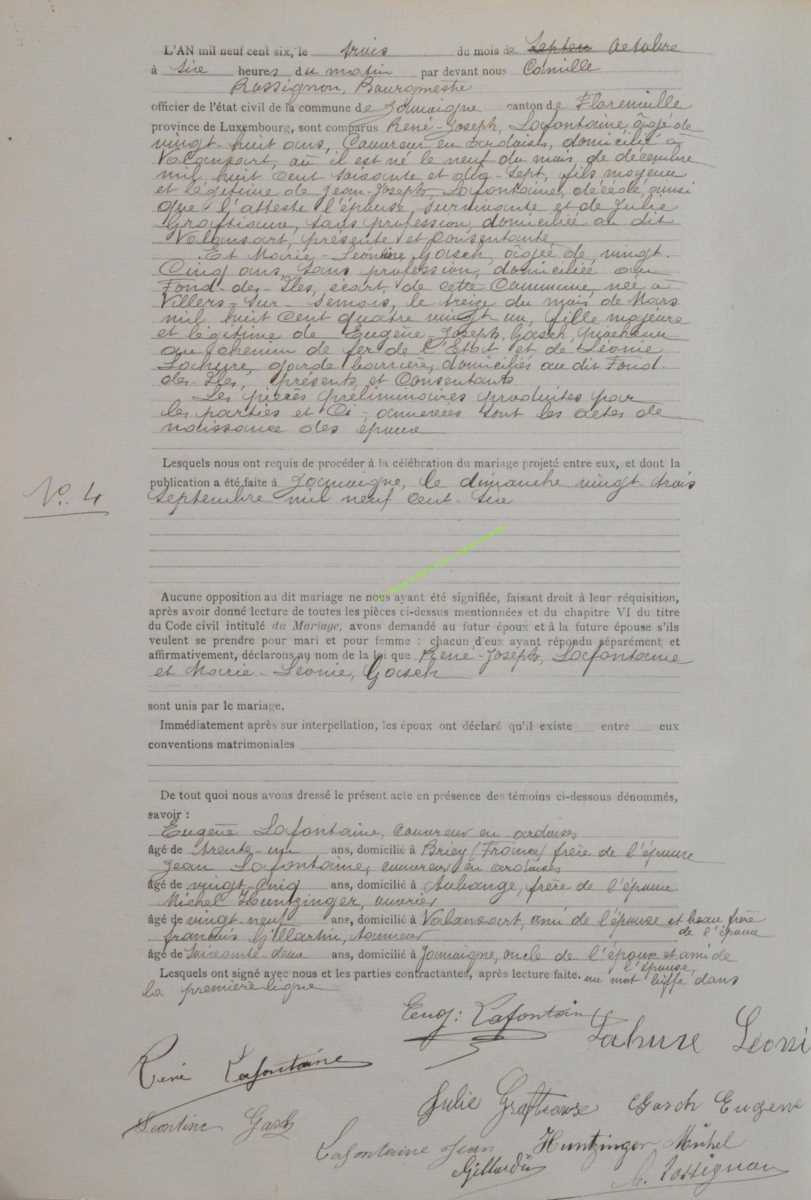 L'AN mil neuf cent six, le trois du mois de Septem Octobre
à six heures du matin par devant nous Camille
Rossignon, Bourgmestre
officier de l'état civil de la commune de Jamoigne canton de Florenville
province de Luxembourg, sont comparus René-Joseph, Lafontaine âgé de
vingt-huit ans, Couvreur en ardoises, domicilié à
Valansart, où il est né le neuf du mois de décembre
mil huit cent soixante et dix-sept, fils majeur
et légitime de Jean-Joseph, Lafontaine, décédé ainsi
que l'atteste l'épouse, survivante et de Julie
sans profession, domiciliée au dit
Valansart, présente et consentante.
Et Marie-Léontine Gasch, âgée de vingt-
Cinq ans, sans profession, domiciliée au
Fond-des-Iles, écart de cette Commune, née à
Villers-sur-Semois, le treize du mois de Mars
mil huit cent quatre vingt un, fille majeure
et légitime de Eugène-Joseph, Gasch, piocheur
au chemin de fer de l'Etat et de Léonie
Lahure, garde barrière, domiciliés au dit Fond-
des-Iles, présents et Consentants.
Les pièces préliminaires produites par
les parties et Ci-annexées sont les actes de
naissance des époux
Lesquels nous ont requis de procéder à la célébration du mariage projeté entre eux, et dont la
publication a été faite à Jamoigne, le dimanche vingt-trois
Septembre mil neuf cent-six
No. 4
Aucune opposition au dit mariage ne nous ayant été signifiée, faisant droit à leur réquisition,
après avoir donné lecture de toutes les pièces ci-dessus mentionnées et du chapitre VI du titre
du Code civil intitulé du Mariage, avons demandé au futur époux et à la future épouse s'ils
veulent se prendre pour mari et pour femme : chacun d'eux ayant répondu séparément et
affirmativement, déclarons au nom de la loi que René-Joseph, Lafontaine
et Marie-Léonie, Gasch
sont unis par le mariage.
Immédiatement après sur interpellation, les époux ont déclaré qu'il existe entre eux
conventions matrimoniales
De tout quoi nous avons dressé le présent acte en présence des témoins ci-dessous dénommés,
savoir :
Eugène Lafontaine, Couvreur en ardoises
âgé de trente-un ans, domicilié à Briey (France) frère de l'époux
Jean Lafontaine, couvreur en ardoises
âgé de vingt-cinq ans, domicilié à Aubange, frère de l'époux
Michel Huntzinger, ouvrier
âgé de vingt-neuf ans, domicilié à Valansart, ami de l'épouse et beau frère
de l'époux
françois Gillardin,
âgé de soixante deux ans, domicilié à Jamoigne, oncle de l'époux et ami de
l'épouse,
Lesquels ont signé avec nous et les parties contractantes, après lecture faite. un mot biffé dans
la première ligne
Eug: Lafontaine
Lahure Léoni
René Lafontaine
Julie Gasch Eugène
Léontine Gasch
Lafontaine Jean Huntzinger Michel
Gillardin
C. Rossignon